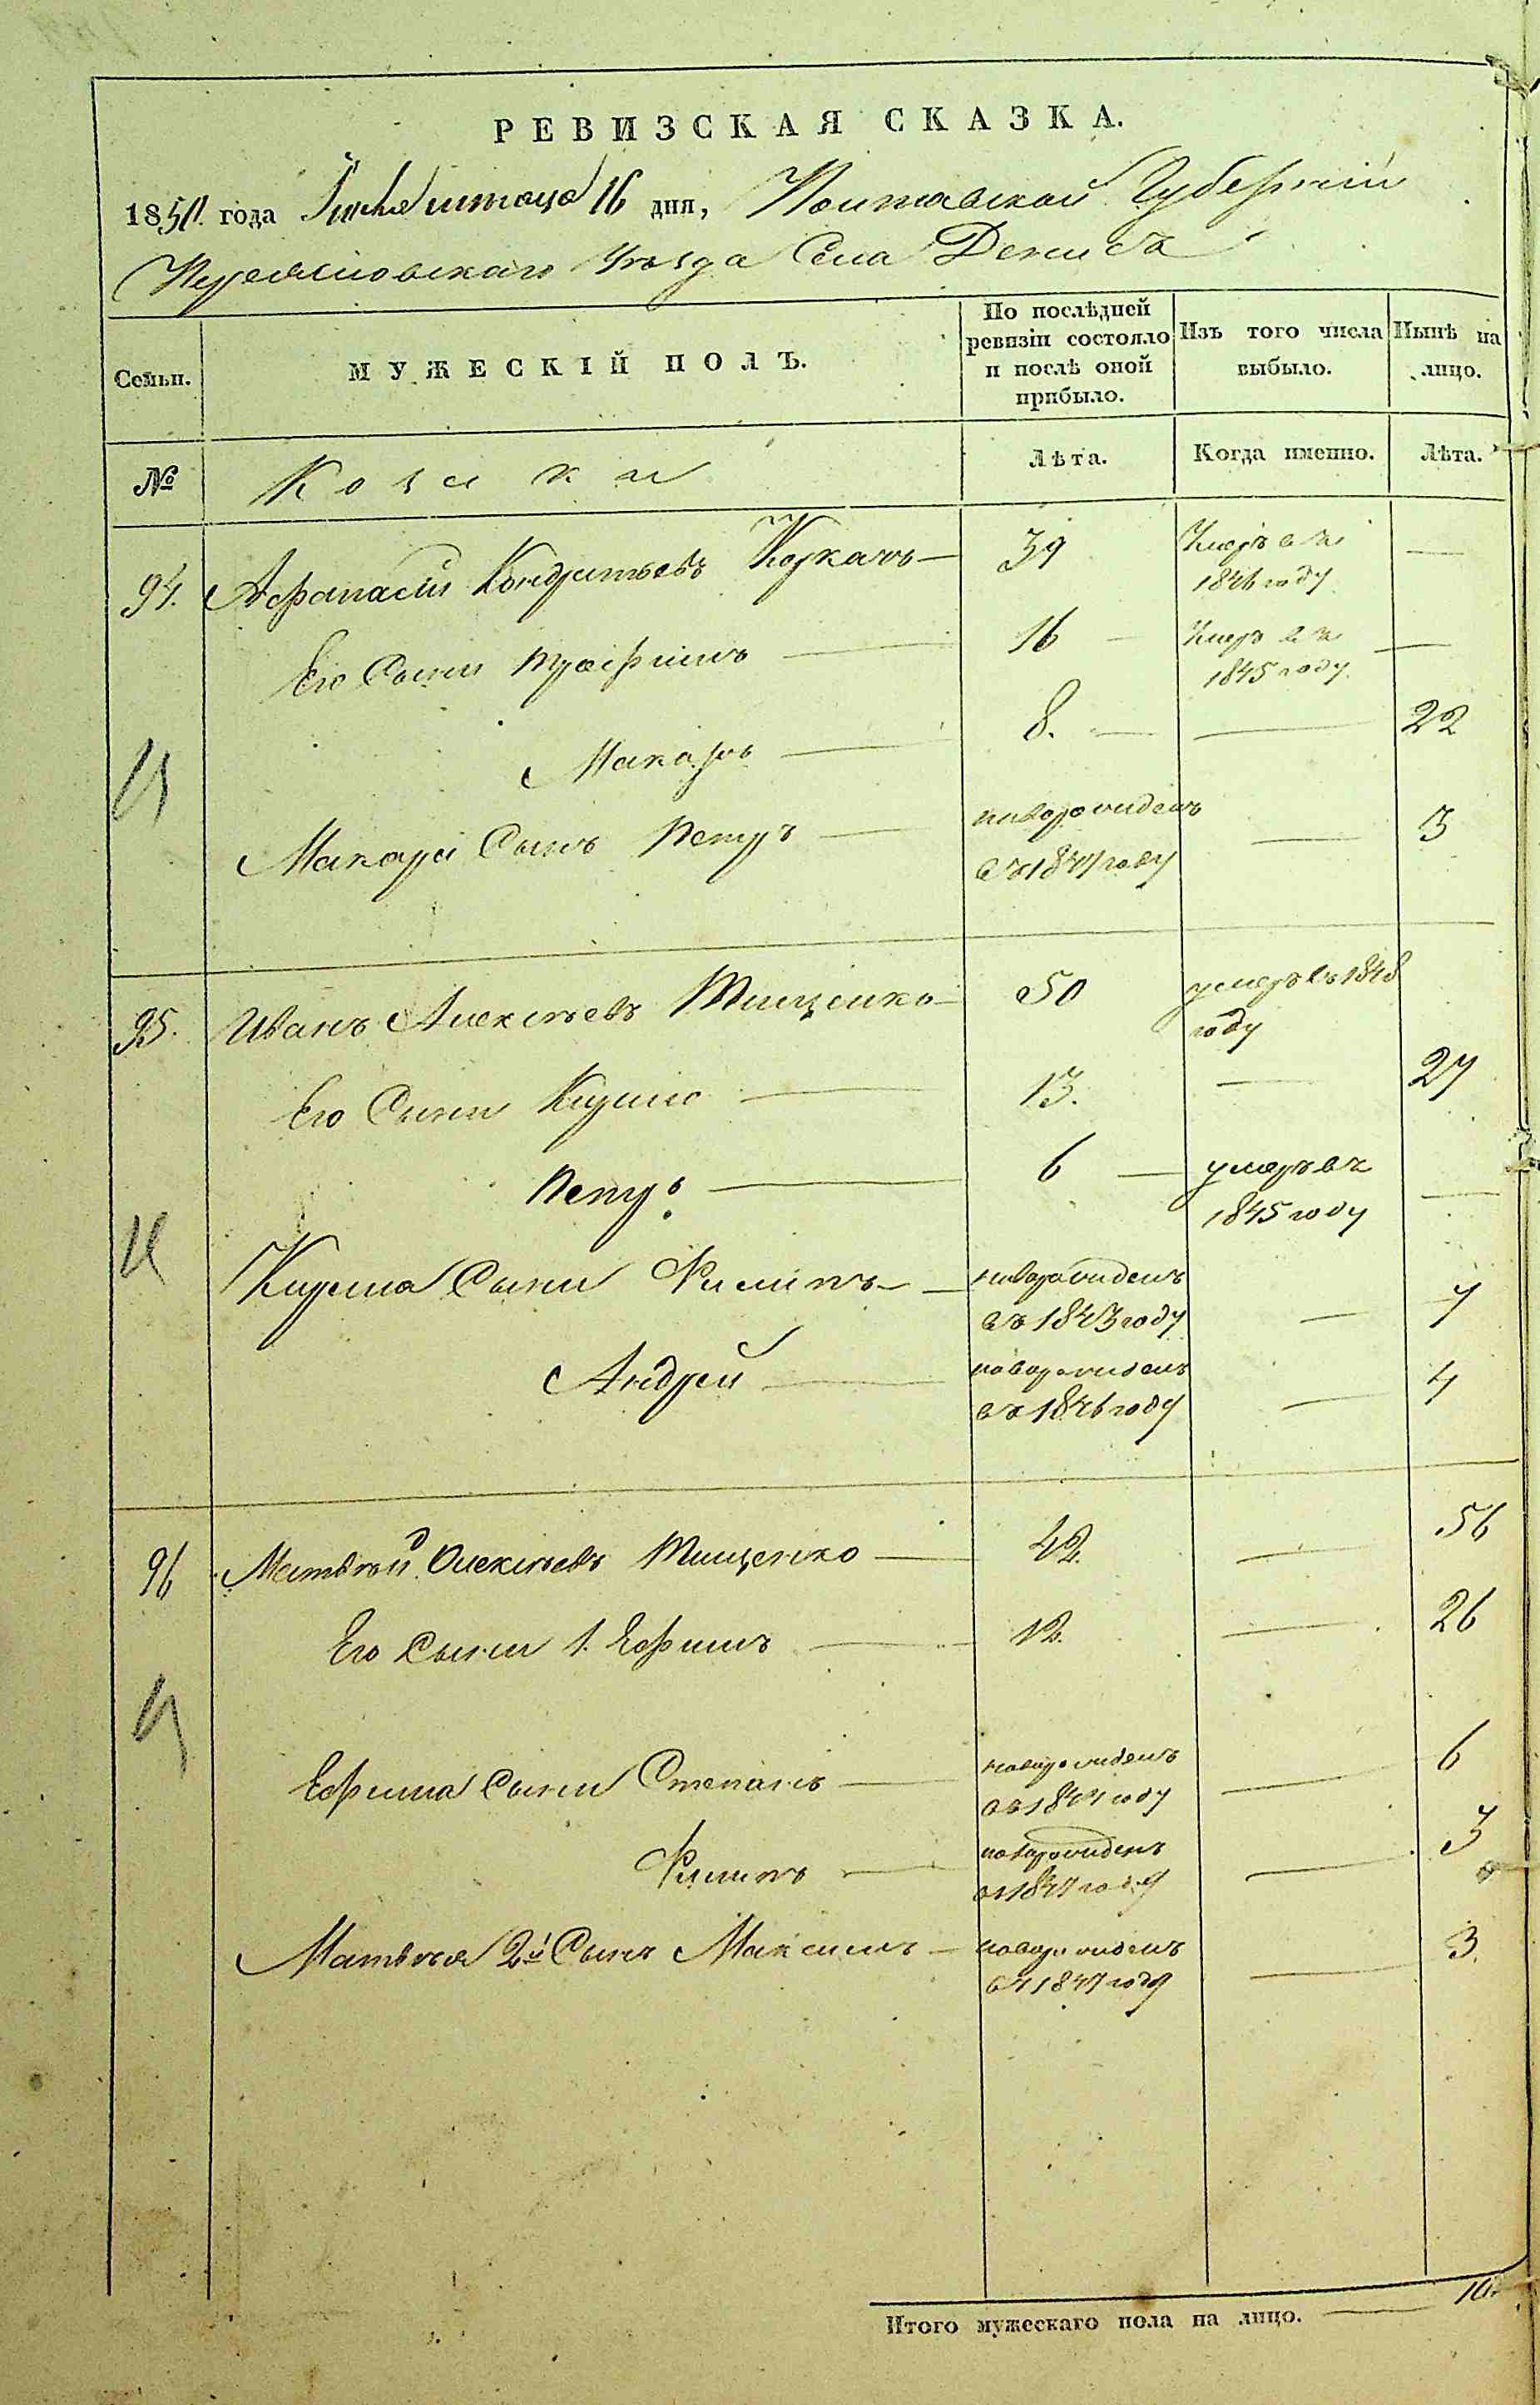 РЕВИЗСКАЯ СКАЗКА.
1850 года Июня месяца 16 дня, Полтавской Губерніи
Переяславскаго Уѣзда Села Денисъ
Семьи. МУЖЕСКІЙ ПОЛЪ. По послѣдней ревизіи состояло и послѣ оной прибыло. Изъ того числа выбыло. Нынѣ на лицо.
№ Козаки Лѣта. Когда именно. Лѣта.
94. Афанасій Кондратьевъ Коркачъ — 39 Умеръ въ 1846 году —
Его Сыни Трофимъ — 16 — Умеръ въ 1845 году —
Макаръ — 8. — — 22
Макара Сынъ Петръ — новорожденъ въ 1847 году — 3
95. Иванъ Алексѣевъ Тищенко — 50 умеръ въ 1848 году
Его Сыни Кузма — 13. — 27
Петръ — 6 — умеръ въ 1845 году —
Кузма Сыни Филипъ — новорожденъ въ 1843 году — 7
Андрей — новорожденъ въ 1846 году — 4
96 Матвѣй Олексѣевъ Тищенко — 42. — 56
Его Сыни 1. Ефимъ — 12. — 26
Ефима Сыни Степанъ — новорожденъ въ 1844 году — 6
Филипъ — новорожденъ въ 1847 году — 3
Матвѣя 2й Сынъ Максимъ — новорожденъ въ 1847 году — 3.
Итого мужескаго пола на лицо. — 10